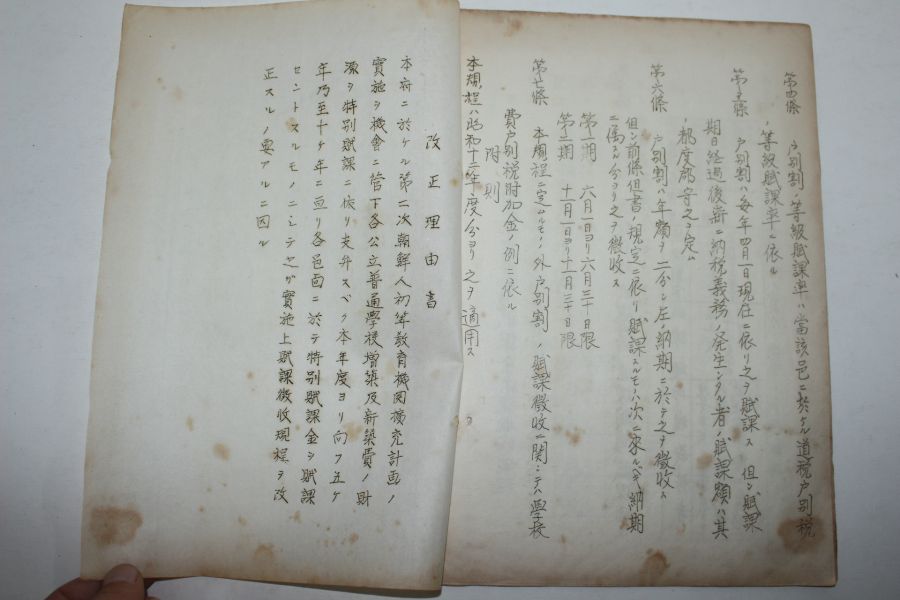 第四條　戸別割ノ等級賦課率ハ當該邑ニ於ケル道税戸別税
ノ等級賦課率ニ依ル
第五條　戸別割ハ毎年四月一日現在ニ依リ之ヲ賦課ス　但シ賦課
期日経過後新ニ納税義務ノ発生シタル者ノ賦課額ハ其
ノ都度郡守之ヲ定ム
第六條　戸別割ハ年額ヲ二分シ左ノ納期ニ於テ之ヲ徴收ス
但シ前條但書ノ規定ニ依リ賦課スルモノハ次ニ来ルベキ納期
ニ属スル分ヨリ之ヲ徴收ス
第一期　六月一日ヨリ六月三十日限
第二期　十一月一日ヨリ十一月三十日限
第七條　本規程ニ定ムルモノノ外戸別割ノ賦課徴收ニ関シテハ學校
費戸別税附加金ノ例ニ依ル
附則
本規程ハ昭和十二年度分ヨリ之ヲ適用ス
改正理由書
本府ニ於ケル第二次朝鮮人初等教育機関擴充計画ノ
實施ヲ機會ニ管下各公立普通學校増築及新築費ノ財
源ヲ特別賦課ニ依リ支弁スベク本年度ヨリ向フ五ケ
年乃至十ケ年ニ亘リ各邑面ニ於テ特別賦課金ヲ賦課
セントスルモノニシテ之ガ實施上賦課徴收規程ヲ改
正スルノ要アルニ因ル